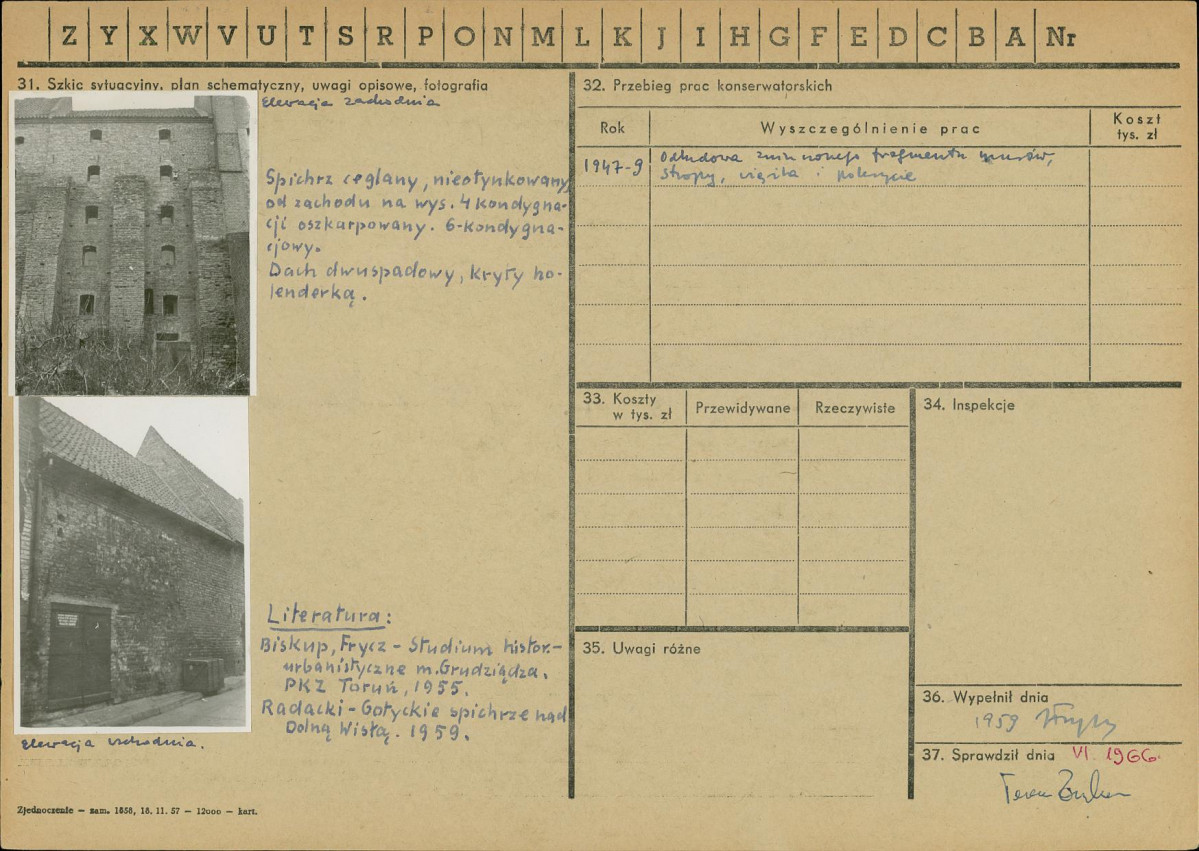 Z Y X W V U T S R P O N M L K J I H G F E D C B A Nr
31. Szkic sytuacyjny, plan schematyczny, uwagi opisowe, fotografia
Elewacja zachodnia
Spichrz ceglany, nieotynkowany,
od zachodu na wys. 4 kondygna-
cji oszkarpowany. 6-kondygna-
cjowy.
Dach dwuspadowy, kryty ho-
lenderką.
Literatura:
Biskup, Frycz - Studium histor.-
urbanistyczne m. Grudziądza.
PKZ Toruń, 1955.
Radacki - Gotyckie spichrze nad
Dolną Wisłą. 1959.
Elewacja wschodnia.
Zjednoczenie — zam. 1658, 18. 11. 57 — 12000 — kart.
32. Przebieg prac konserwatorskich
Rok
Wyszczególnienie prac
Koszt
tys. zł
1947-9
Odbudowa zniszczonego fragmentu murów,
stropy, więźba i pokrycie
33. Koszty
w tys. zł
Przewidywane
Rzeczywiste
34. Inspekcje
35. Uwagi różne
36. Wypełnił dnia
1959
37. Sprawdził dnia VI. 1966.